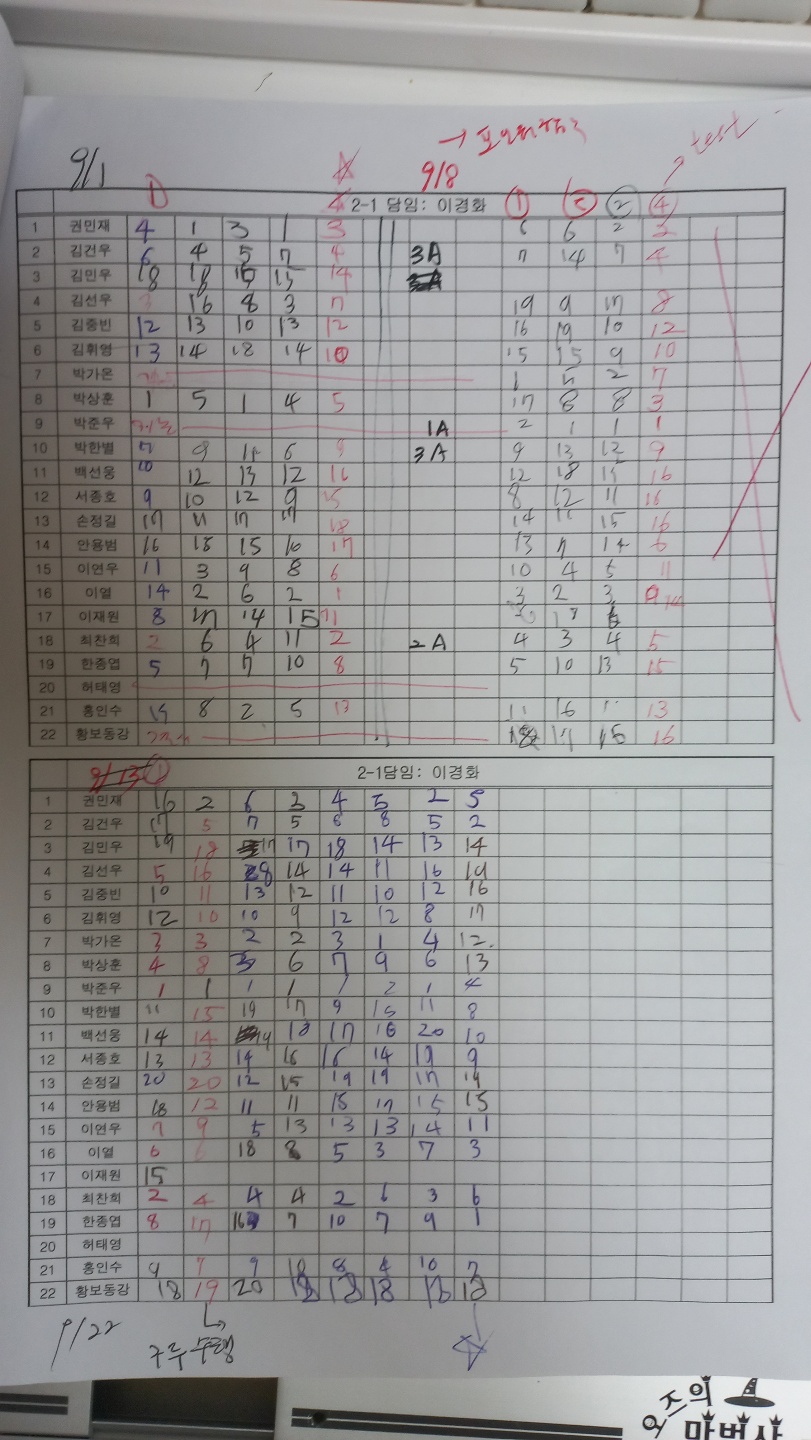 9/1 ① 9/8 → test
2-1 담임: 이경화 ① ② ④
1 권민재 4 1 3 1 3 6 6 2 2
2 김건우 6 4 5 7 4 3A 7 14 7 4
3 김민우 18 18 15 14
4 김선우 3 16 8 3 7 19 9 17 8
5 김종빈 12 13 10 13 12 16 19 10 12
6 김휘영 13 14 18 14 10 15 15 9 10
7 박가온 1 5 2 7
8 박상훈 1 5 1 4 5 17 8 8 3
9 박준우 1A 2 1 1 1
10 박한별 7 9 11 6 9 3A 9 13 12 9
11 백선웅 10 12 13 12 16 12 18 16
12 서종호 9 10 12 9 15 8 12 11 16
13 손정길 17 11 17 17 18 14 11 15 16
14 안용범 16 18 15 16 17 13 7 14 6
15 이연우 11 3 9 8 6 10 4 5 11
16 이열 14 2 6 2 1 3 2 3 14
17 이재원 8 17 14 15 11
18 최찬희 2 6 4 11 2 2A 4 3 4 5
19 한종엽 5 7 7 10 8 5 10 13 15
20 허태영
21 홍인수 15 8 2 5 13 11 16 11 13
22 황보동강 17 16
9/13 ① 2-1담임: 이경화
1 권민재 16 2 6 3 4 5 2 5
2 김건우 17 5 7 5 6 8 5 2
3 김민우 19 18 17 17 18 14 13 14
4 김선우 5 16 8 14 14 11 16 19
5 김종빈 10 11 13 12 11 10 12 16
6 김휘영 12 10 10 9 12 12 8 17
7 박가온 3 3 2 2 3 1 4 12
8 박상훈 4 8 3 6 7 9 6 13
9 박준우 1 1 1 1 1 2 1 4
10 박한별 11 15 19 17 9 15 11 8
11 백선웅 14 14 19 18 17 16 20 10
12 서종호 13 13 14 16 16 14 19 9
13 손정길 20 20 12 15 19 19 17 14
14 안용범 18 12 11 11 15 17 15 15
15 이연우 7 9 5 13 13 13 14 11
16 이열 6 6 18 8 5 3 7 3
17 이재원 15
18 최찬희 2 4 4 4 2 6 3 6
19 한종엽 8 17 16 7 10 7 9 1
20 허태영
21 홍인수 9 7 9 18 8 4 10 7
22 황보동강 18 19 20 18 18 18 16 18
9/22 구두 수행
오즈의
마법사